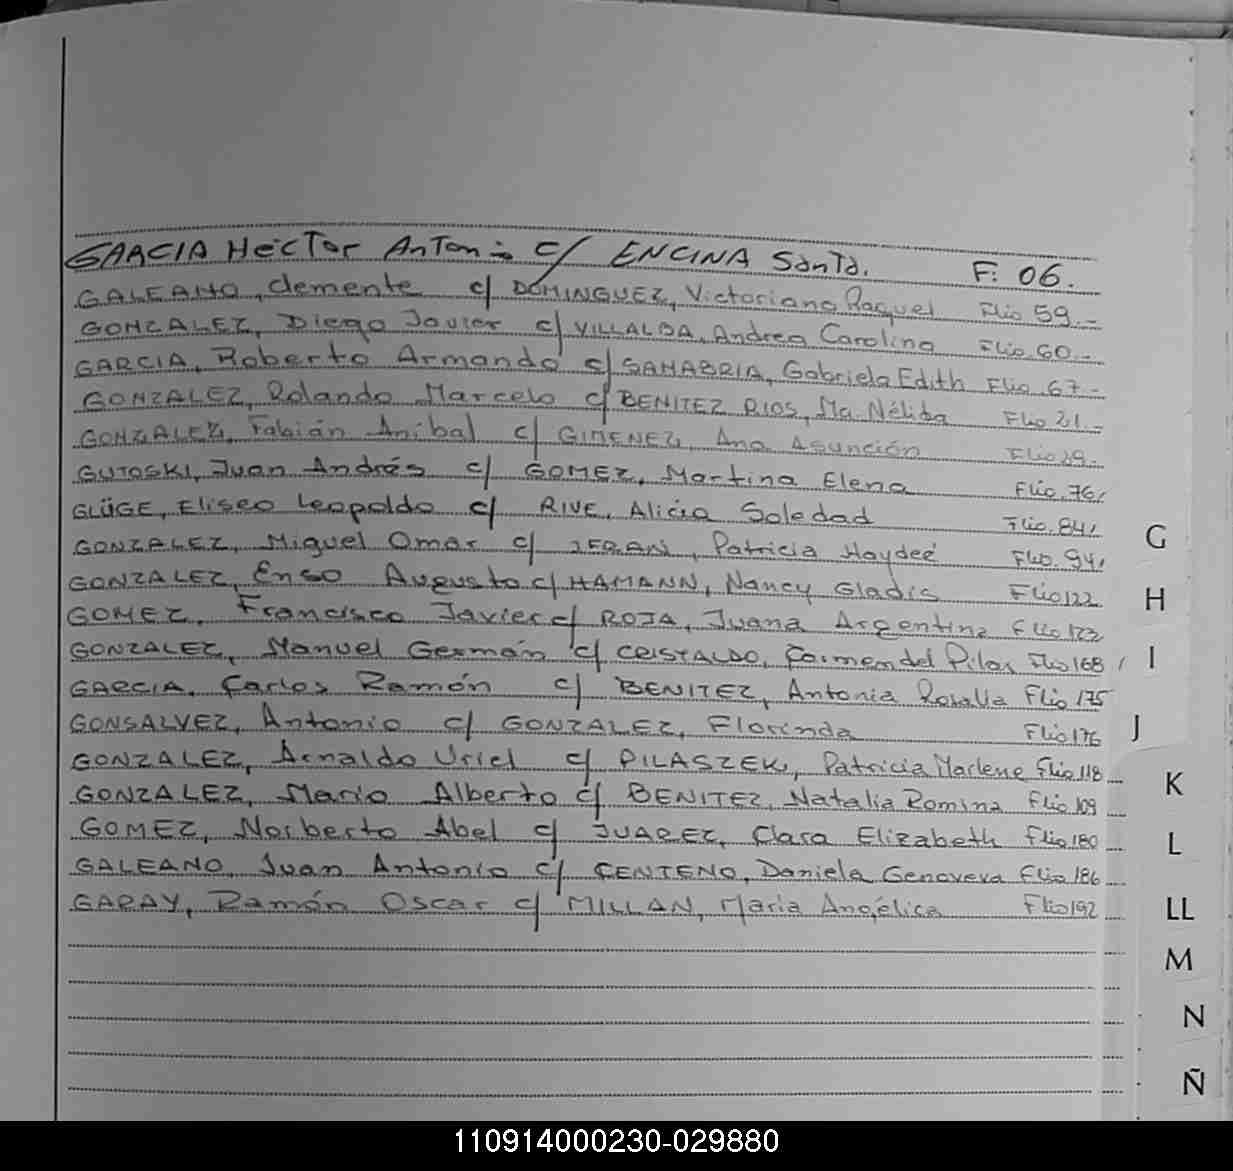 GARCIA Hector Antonio c/ ENCINA Santa. F: 06.
GALEANO, Clemente c/ DOMINGUEZ, Victoriana Raquel Flio 59.-
GONZALEZ, Diego Javier c/ VILLALBA, Andrea Carolina Flio. 60.-
GARCIA, Roberto Armando c/ SANABRIA, Gabriela Edith Flio. 67.-
GONZALEZ, Rolando Marcelo c/ BENITEZ RIOS, Ma. Nélida Flio 21.-
GONZALEZ, Fabián Aníbal c/ GIMENEZ, Ana Asunción Flio 29.-
GUTOSKI, Juan Andrés c/ GOMEZ, Martina Elena Flio. 76,
GLÜGE, Eliseo Leopoldo c/ RIVE, Alicia Soledad Flio. 84,
GONZALEZ, Miguel Omar c/ Patricia Haydeé Flio. 94,
GONZALEZ, Enso Augusto c/ HAMANN, Nancy Gladis Flio 122
GOMEZ, Francisco Javier c/ ROJA, Juana Argentina Flio 123
GONZALEZ, Manuel Germán c/ CRISTALDO, Carmen del Pilar Flio 168 /
GARCIA, Carlos Ramón c/ BENITEZ, Antonia Rosalia Flio 175
GONSALVEZ, Antonio c/ GONZALEZ, Florinda Flio 176
GONZALEZ, Arnaldo Uriel c/ PILASZEK, Patricia Marlene Flio 118
GONZALEZ, Mario Alberto c/ BENITEZ, Natalia Romina Flio 109
GOMEZ, Norberto Abel c/ JUAREZ, Clara Elizabeth Flio 180
GALEANO, Juan Antonio c/ CENTENO, Daniela Genoveva Flio 186
GARAY, Ramón Oscar c/ MILLAN, Maria Angélica Flio 192
G
H
I
J
K
L
LL
M
N
Ñ
110914000230-029880